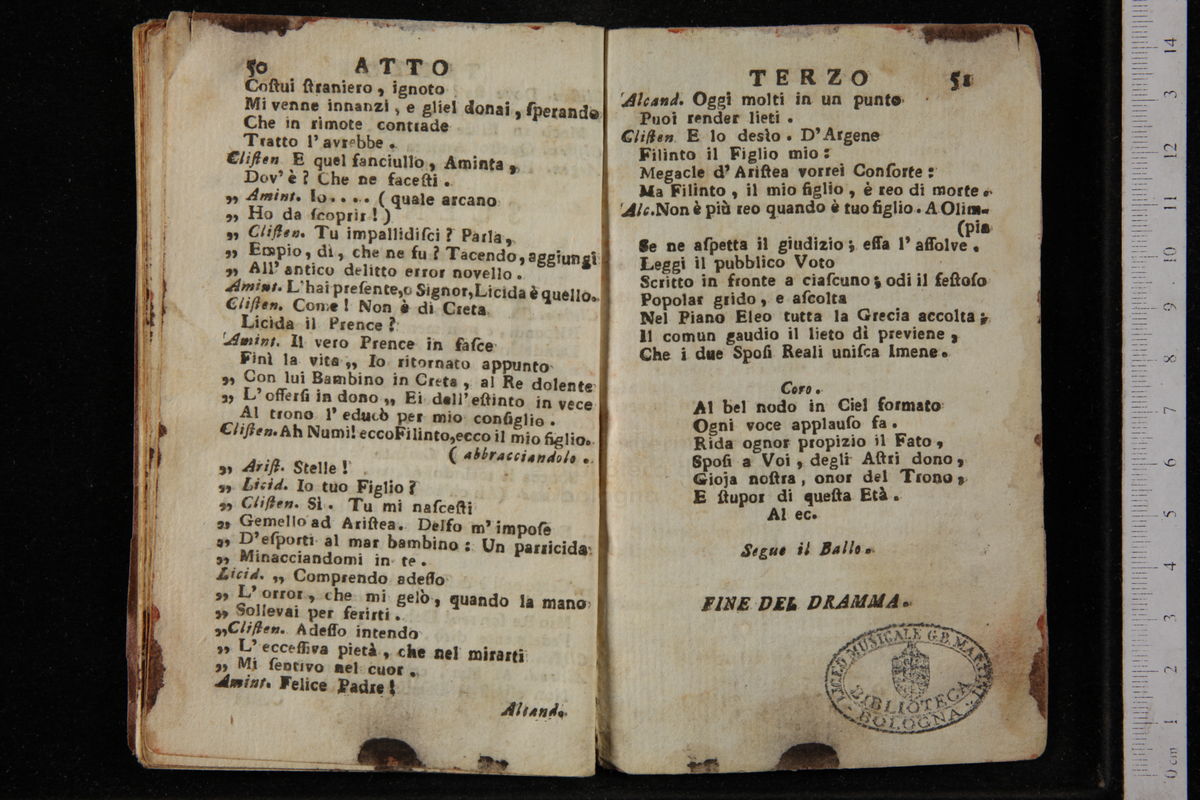 50 ATTO
Coſtui ſtraniero, ignoto
Mi venne innanzi, e gliel donai, ſperando
Che in rimote contrade
Tratto l'avrebbe.
Cliſten. E quel fanciullo, Aminta,
Dov'è? Che ne faceſti.
„ Amint. Io..... (quale arcano
„ Ho da ſcoprir!)
„ Cliſten. Tu impallidiſci? Parla,
„ Empio, di, che ne fu? Tacendo, aggiungi
„ All'antico delitto error novello.
Amint. L'hai preſente, o Signor, Licida è quello.
Cliſten. Come! Non è di Creta
Licida il Prence?
Amint. Il vero Prence in faſce
Finì la vita „ Io ritornato appunto
„ Con lui Bambino in Creta, al Re dolente
„ L'offerſi in dono „ Ei dell'eſtinto in vece
Al trono l'educò per mio conſiglio.
Cliſten. Ah Numi! ecco Filinto, ecco il mio figlio.
(abbracciandolo.
„ Ariſt. Stelle!
„ Licid. Io tuo Figlio?
„ Cliſten. Sì. Tu mi naſceſti
„ Gemello ad Ariſtea. Delfo m'impoſe
„ D'eſporti al mar bambino: Un parricida
„ Minacciandomi in te.
Licid. „ Comprendo adeſſo
„ L'orror, che mi gelò, quando la mano
„ Sollevai per ferirti.
„ Cliſten. Adeſſo intendo
„ L'ecceſſiva pietà, che nel mirarti
„ Mi ſentivo nel cuor.
Amint. Felice Padre!
Alcand.
TERZO 51
Alcand. Oggi molti in un punto
Puoi render lieti.
Cliſten. E lo desìo. D'Argene
Filinto il Figlio mio:
Megacle d'Ariſtea vorrei Conſorte:
Ma Filinto, il mio figlio, è reo di morte.
Alc. Non è più reo quando è tuo figlio. A Olim-
(pia
Se ne aſpetta il giudizio; eſſa l'aſſolve.
Leggi il pubblico Voto
Scritto in fronte a ciaſcuno; odi il feſtoſo
Popolar grido, e aſcolta
Nel Piano Eleo tutta la Grecia accolta;
Il comun gaudio il lieto di previene,
Che i due Spoſi Reali uniſca Imene.
Coro.
Al bel nodo in Ciel formato
Ogni voce applauſo fa.
Rida ognor propizio il Fato,
Spoſi a Voi, degli Aſtri dono,
Gioja noſtra, onor del Trono,
E ſtupor di queſta Età.
Al ec.
Segue il Ballo.
FINE DEL DRAMMA.
LICEO MUSICALE G.B. MARTINI
BIBLIOTECA
BOLOGNA
0 cm 1 2 3 4 5 6 7 8 9 10 11 12 13 14